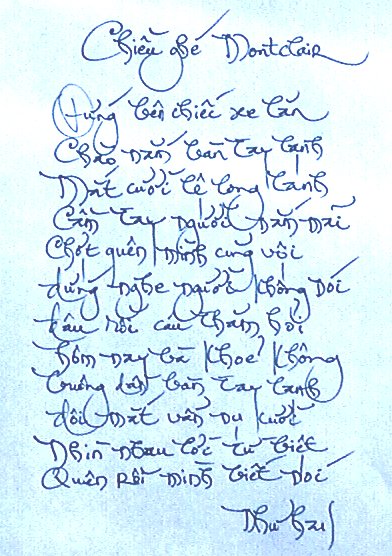 Chiều ghé Montclair
Đứng bên chiếc xe lăn
Chào nắm bàn tay lạnh
Mắt cười lệ long lanh
Cầm tay người nắn nãi
Chợt quên mình cũng vội
đứng nghe người không nói
đâu rồi câu thăm hỏi
hôm nay bà khoẻ không
buông dần bàn tay lạnh
đôi mắt vẫn nụ cười
Nhìn nhau lời từ biệt
Quên rồi mình biết nói